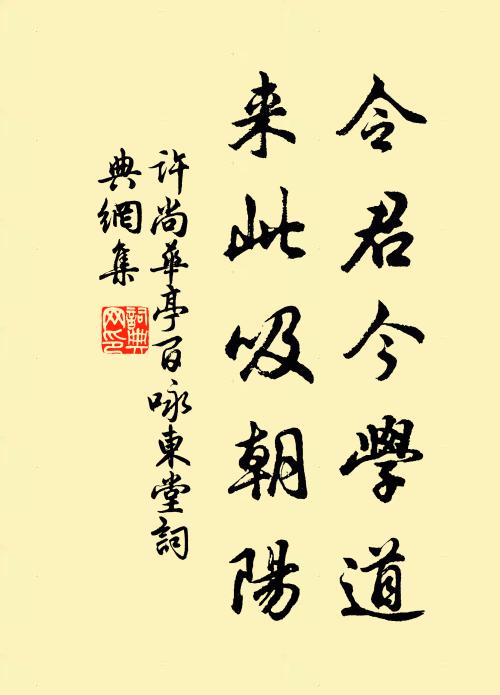 令君今學道
来此吸朝陽
許尚華亭百咏東堂詞
典網集
詞典網印